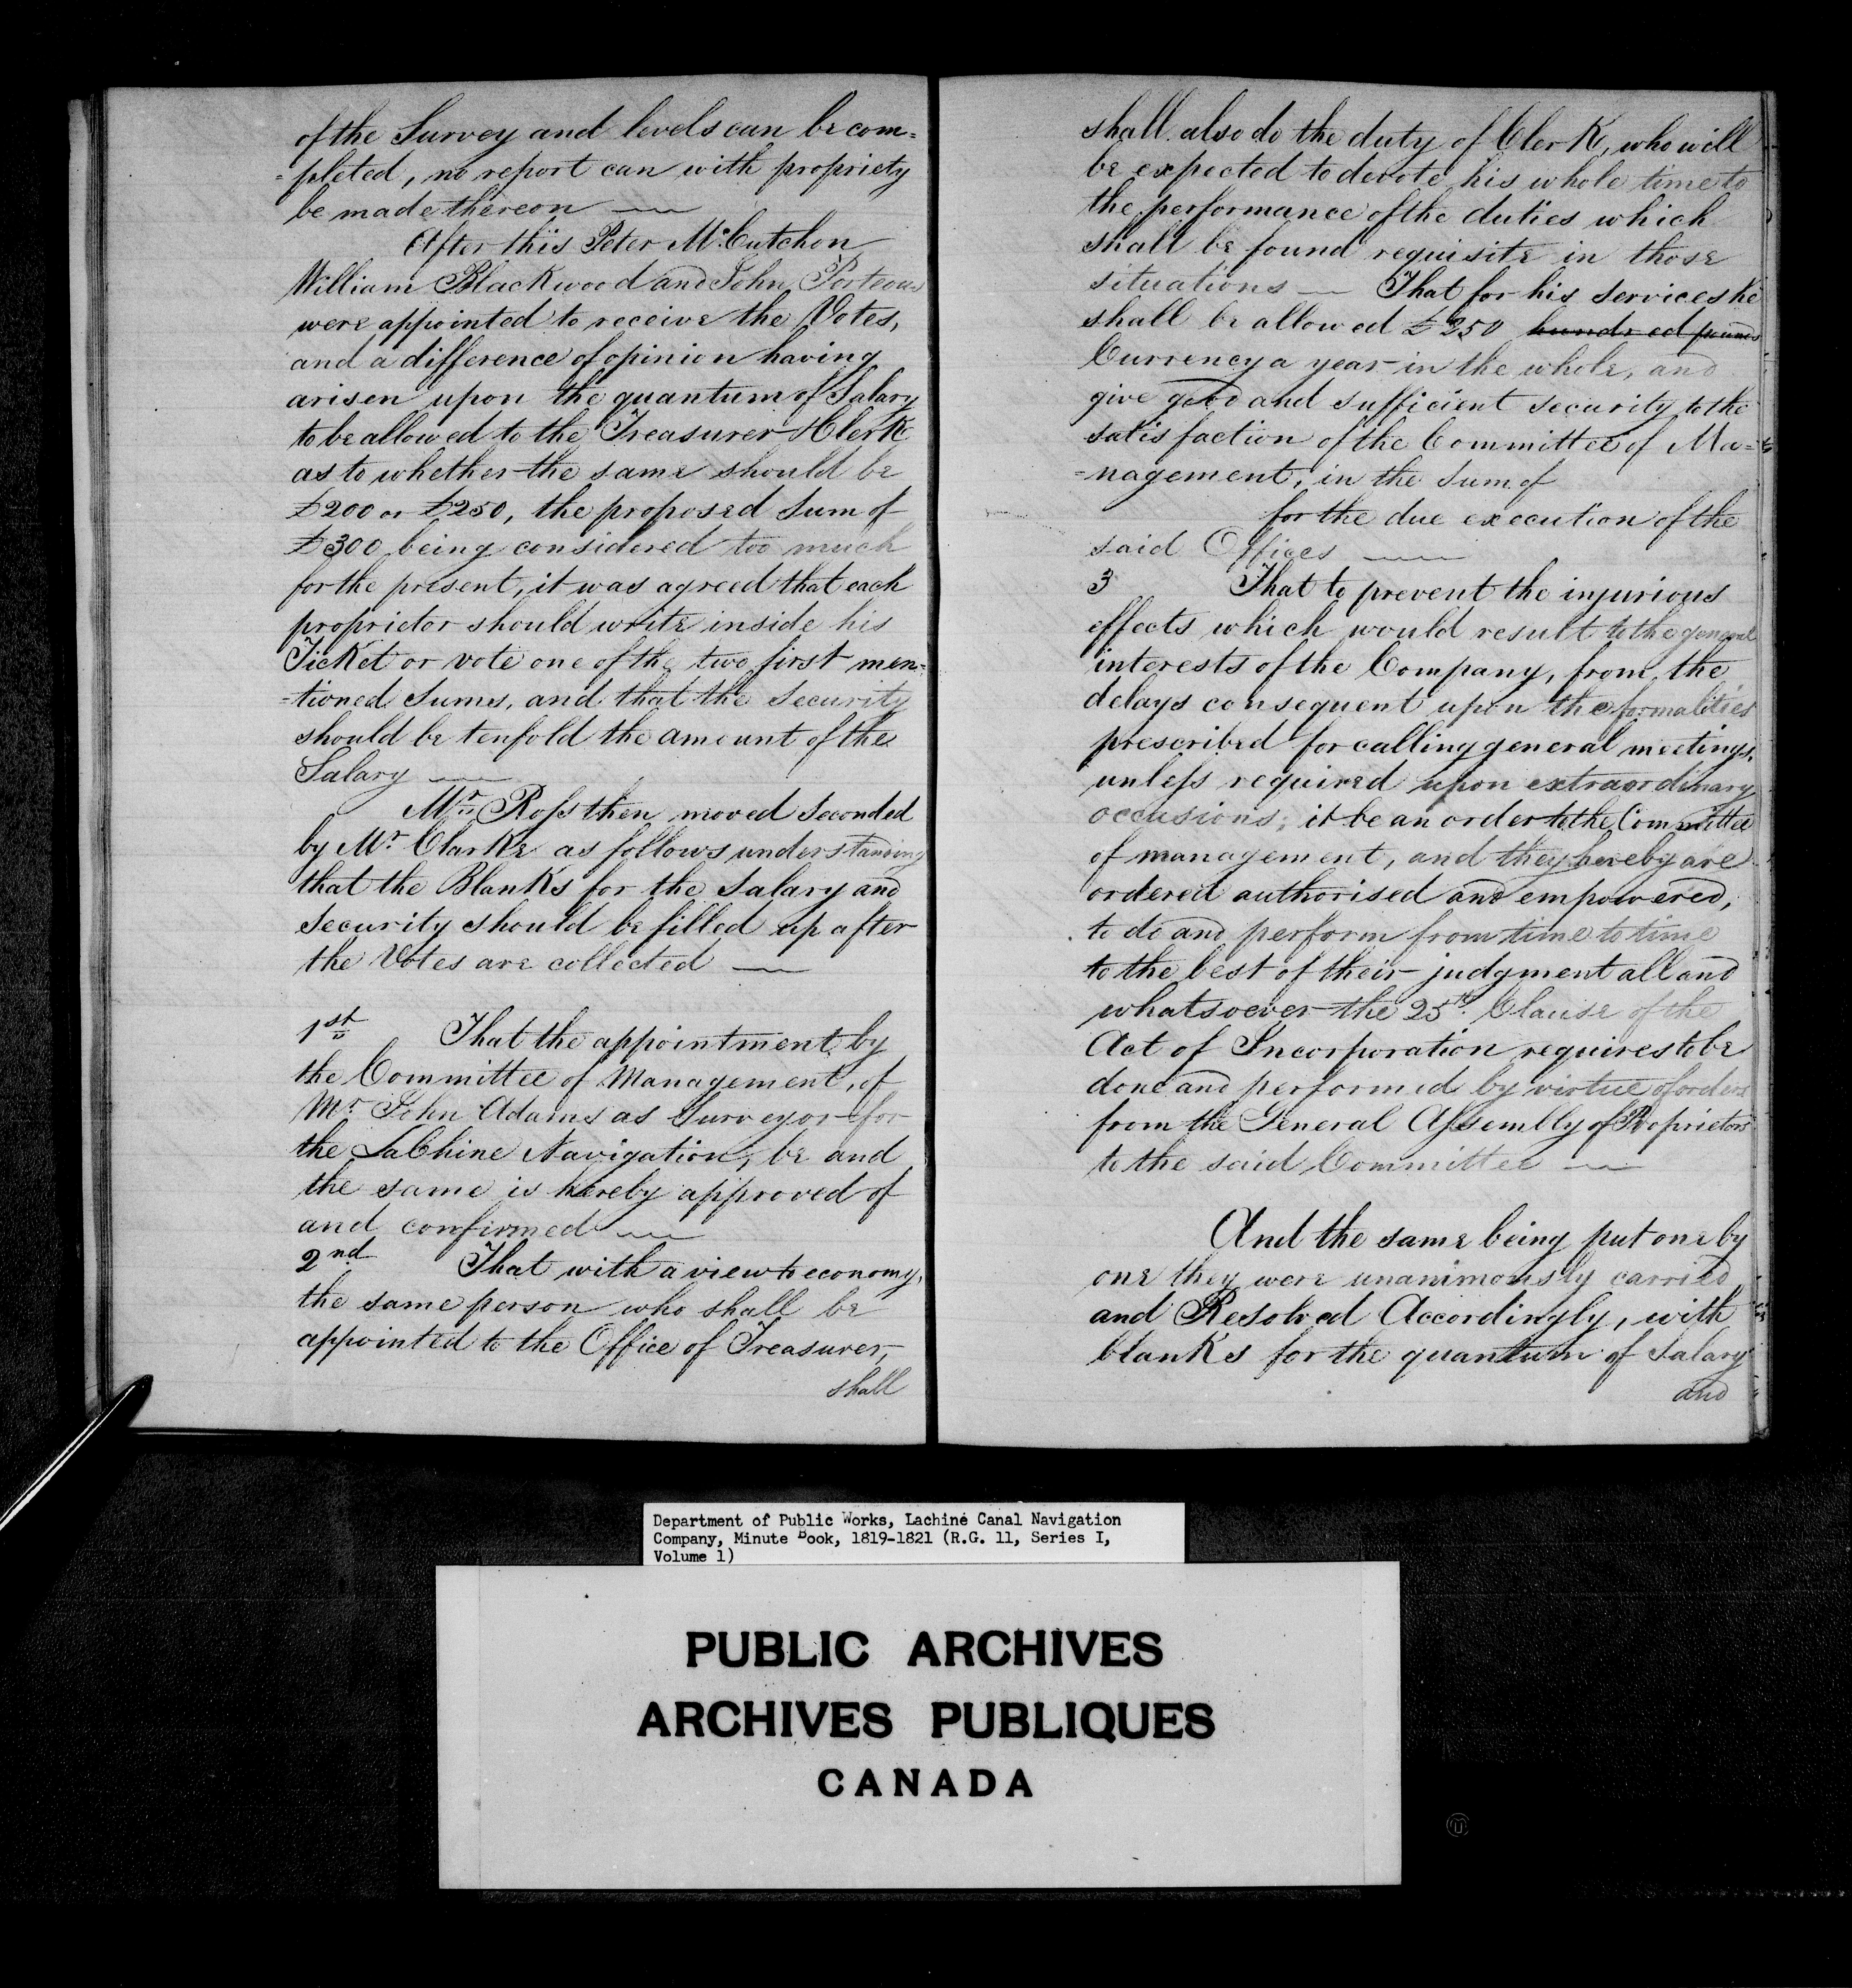 of the Survey and levels can be com=
=pleted, no report can with propriety
be made thereon —
After this Peter McCutchon
William Blackwood and John Porteous
were appointed to receive the Votes,
and a difference of opinion having
arisen upon the quantum of Salary
to be allowed to the Treasurer & Clerk
as to whether the same should be
£200 or £250, the proposed Sum of
£300 being considered too much
for the present, it was agreed that each
proprietor should write inside his
Ticket or vote one of the two first men=
=tioned Sums, and that the Security
should be tenfold the amount of the
Salary —
Mr. Ross then moved Seconded
by Mr. Clarke as follows understanding
that the Blanks for the Salary and
Security should be filled up after
the Votes are collected —
1st That the appointment by
the Committee of Management, of
Mr. John Adams as Surveyor for
the LaChine Navigation, be and
the same is hereby approved of
and confirmed —
2nd That with a view to economy,
the same person who shall be
appointed to the Office of Treasurer,
shall
shall also do the duty of Clerk, who will
be expected to devote his whole time to
the performance of the duties which
shall be found requisite in those
situations — That for his services he
shall be allowed £250 hundred pounds
Currency a year in the whole, and
give good and sufficient security to the
satisfaction of the Committee of Ma=
=nagement, in the Sum of
for the due execution of the
said Offices —
3 That to prevent the injurious
effects which would result to the general
interests of the Company, from the
delays consequent upon the formalities
prescribed for calling general meetings,
unless required upon extraordinary
occasions; it be an order to the Committee
of management, and they hereby are
ordered authorised and empowered,
to do and perform from time to time
to the best of their judgment all and
whatsoever the 25th. Clause of the
Act of Incorporation requires to be
done and performed by virtue of orders
from the General Assembly of Proprietors
to the said Committee —
And the same being put one by
one they were unanimously carried
and Resolved Accordingly, with
blanks for the quantum of Salary
and
Department of Public Works, Lachine Canal Navigation
Company, Minute Book, 1819-1821 (R.G. 11, Series I,
Volume 1)
PUBLIC ARCHIVES
ARCHIVES PUBLIQUES
CANADA